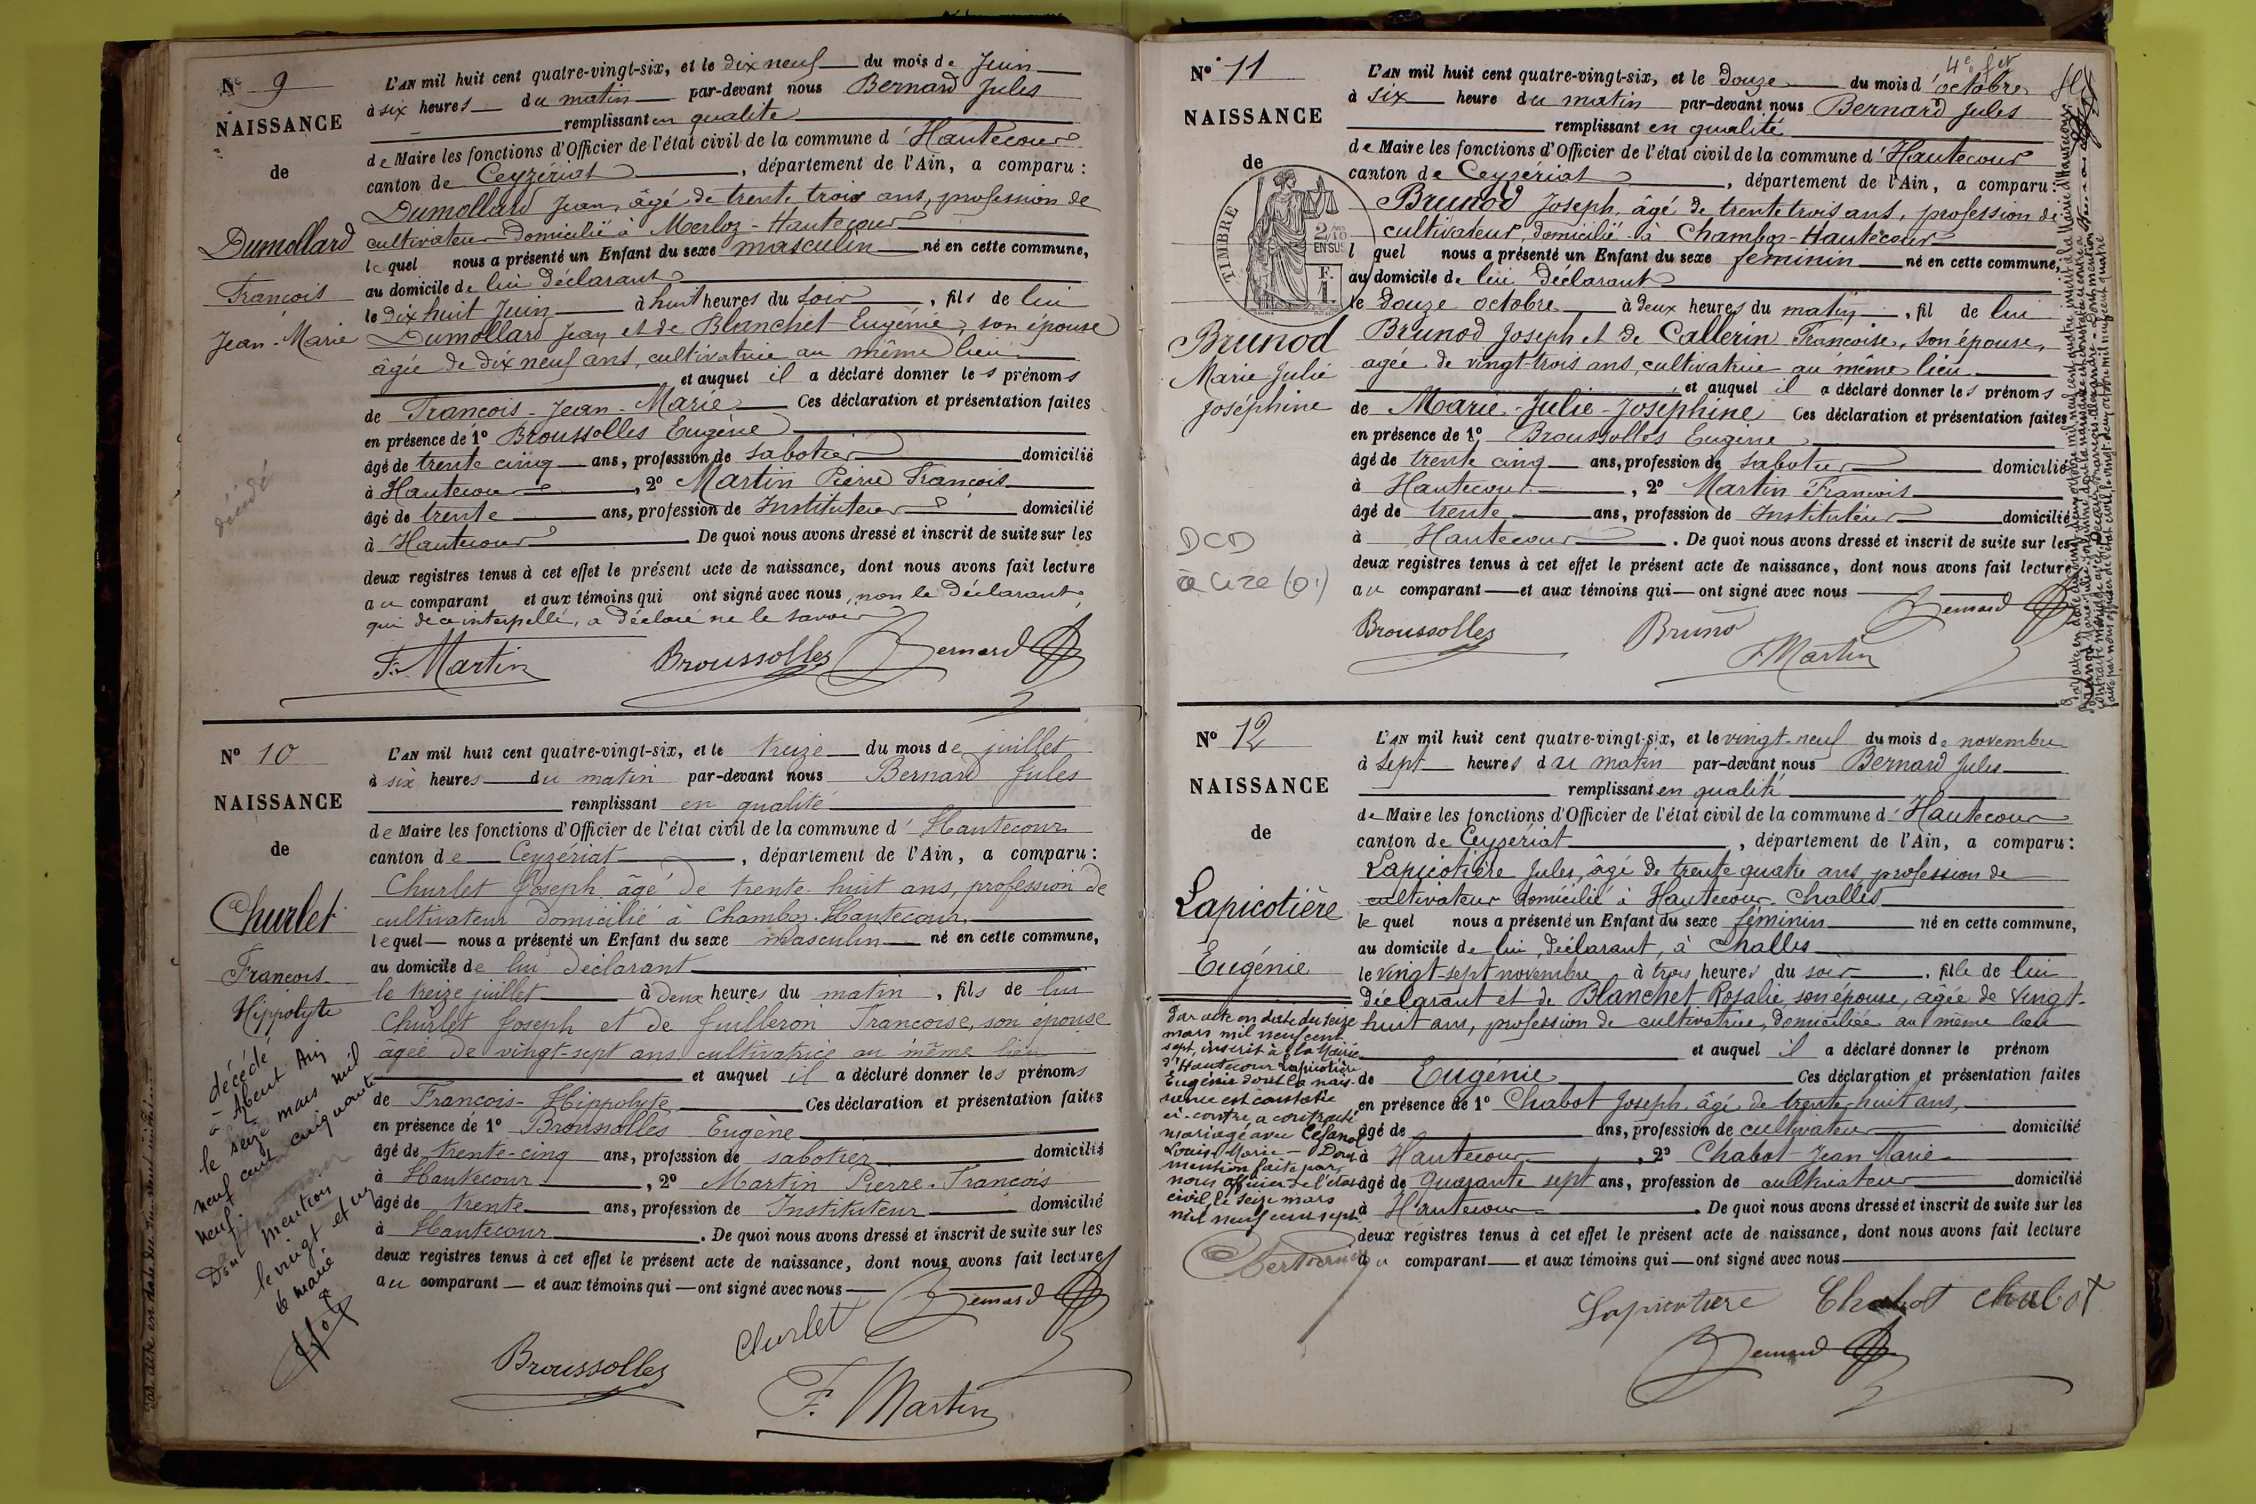 N° 9
NAISSANCE
de
Dumollard
François
Jean-Marie
décédé
L'AN mil huit cent quatre-vingt-six, et le dix neuf du mois de Juin
à six heures du matin par-devant nous Bernard Jules
remplissant en qualité
de Maire les fonctions d'Officier de l'état civil de la commune d'Hautecour
canton de Ceyzériat, département de l'Ain, a comparu :
Dumollard Jean, âgé de trente trois ans, profession de
cultivateur domicilié à Merloz-Hautecour
lequel nous a présenté un Enfant du sexe masculin né en cette commune,
au domicile de lui déclarant
le dix huit Juin à huit heures du soir, fils de lui
Dumollard Jean et de Blanchet Eugénie, son épouse
âgée de dix neuf ans, cultivatrice au même lieu
et auquel il a déclaré donner les prénoms
de François-Jean-Marie Ces déclaration et présentation faites
en présence de 1° Broussolles Eugène
âgé de trente cinq ans, profession de sabotier domicilié
à Hautecour, 2° Martin Pierre François
âgé de trente ans, profession de Instituteur domicilié
à Hautecour De quoi nous avons dressé et inscrit de suite sur les
deux registres tenus à cet effet le présent acte de naissance, dont nous avons fait lecture
au comparant et aux témoins qui ont signé avec nous, non le Déclarant,
qui de ce interpellé, a déclaré ne le savoir
F. Martin Broussolles Bernard
N° 10
NAISSANCE
de
Churlet
François
Hippolyte
décédé
à Abeut Ain
le seize mars mil
neuf cent cinquante
neuf.
Dont mention
le vingt et un
L'AN mil huit cent quatre-vingt-six, et le treize du mois de juillet
à six heures du matin par-devant nous Bernard Jules
remplissant en qualité
de Maire les fonctions d'Officier de l'état civil de la commune d'Hautecour
canton de Ceyzériat, département de l'Ain, a comparu :
Churlet Joseph âgé de trente-huit ans, profession de
cultivateur domicilié à Chambos-Hautecour,
lequel nous a présenté un Enfant du sexe masculin né en cette commune,
au domicile de lui déclarant
le treize juillet à deux heures du matin, fils de lui
Churlet Joseph et de Juilleron Françoise, son épouse
âgée de vingt-sept ans cultivatrice au même lieu
et auquel il a déclaré donner les prénoms
de François-Hippolyte Ces déclaration et présentation faites
en présence de 1° Broussolles Eugène
âgé de trente-cinq ans, profession de sabotier domicilié
à Hautecour, 2° Martin Pierre-François
âgé de trente ans, profession de Instituteur domicilié
à Hautecour. De quoi nous avons dressé et inscrit de suite sur les
deux registres tenus à cet effet le présent acte de naissance, dont nous avons fait lecture
au comparant et aux témoins qui ont signé avec nous
Bernard
Churlet
Broussolles
F. Martin
N° 11
NAISSANCE
de
TIMBRE
2/10
EN SUS
Brunod
Marie Julie
Joséphine
DCD
L'AN mil huit cent quatre-vingt-six, et le douze du mois d'octobre
à six heure du matin par-devant nous Bernard Jules
remplissant en qualité
de Maire les fonctions d'Officier de l'état civil de la commune d'Hautecour
canton de Ceyzériat, département de l'Ain, a comparu :
Brunod Joseph, âgé de trente trois ans, profession de
cultivateur, domicilié à Chambos-Hautecour
l quel nous a présenté un Enfant du sexe féminin né en cette commune,
au domicile de lui déclarant
le douze octobre à deux heures du matin, fil de lui
Brunod Joseph et de Callerin Françoise, son épouse,
agée de vingt-trois ans, cultivatrice au même lieu
et auquel il a déclaré donner les prénoms
de Marie-Julie-Joséphine Ces déclaration et présentation faites
en présence de 1° Broussolles Eugène
âgé de trente cinq ans, profession de sabotier domicilié
à Hautecour, 2° Martin François
âgé de trente ans, profession de Instituteur domicilié
à Hautecour. De quoi nous avons dressé et inscrit de suite sur les
deux registres tenus à cet effet le présent acte de naissance, dont nous avons fait lecture
au comparant et aux témoins qui ont signé avec nous
Broussolles Bruno Bernard
F Martin
N° 12
NAISSANCE
de
Lapicotière
Eugénie
Par acte en date du seize
mars mil neuf cent
sept, inscrit à la Mairie
d'Hautecour Lapicotière
Eugénie dont la nais-
sance est constatée
ci-contre, a contracté
mariage avec Cesanol
Louis Marie - Dont
mention faite par
nous officier de l'état
civil, le seize mars
mil neuf cent sept.
L'AN mil huit cent quatre-vingt-six, et le vingt-neuf du mois de novembre
à sept heures du matin par-devant nous Bernard Jules
remplissant en qualité
de Maire les fonctions d'Officier de l'état civil de la commune d'Hautecour
canton de Ceyzériat, département de l'Ain, a comparu :
Lapicotière Jules, âgé de trente quatre ans, profession de
cultivateur domicilié à Hautecour-Challes
le quel nous a présenté un Enfant du sexe féminin né en cette commune,
au domicile de lui, déclarant, à Challes
le vingt-sept novembre à trois heures du soir, fille de lui
déclarant et de Blanchet Rosalie, son épouse, âgée de vingt-
huit ans, profession de cultivatrice, domiciliée au même lieu
et auquel il a déclaré donner le prénom
de Eugénie Ces déclaration et présentation faites
en présence de 1° Chabot Joseph, âgé de trente-huit ans,
âgé de ans, profession de cultivateur domicilié
à Hautecour, 2° Chabot Jean Marie
âgé de quarante sept ans, profession de cultivateur domicilié
à Hautecour. De quoi nous avons dressé et inscrit de suite sur les
deux registres tenus à cet effet le présent acte de naissance, dont nous avons fait lecture
au comparant et aux témoins qui ont signé avec nous
Lapicotière Chabot Chabot
Bernard